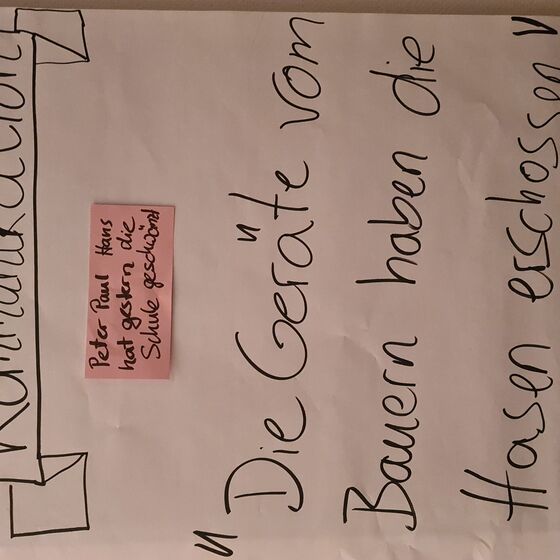 Kommunikation
Peter Paul Hans
hat gestern die
Schule geschwänzt
"Die Geräte vom
Bauern haben die
Hasen erschossen"